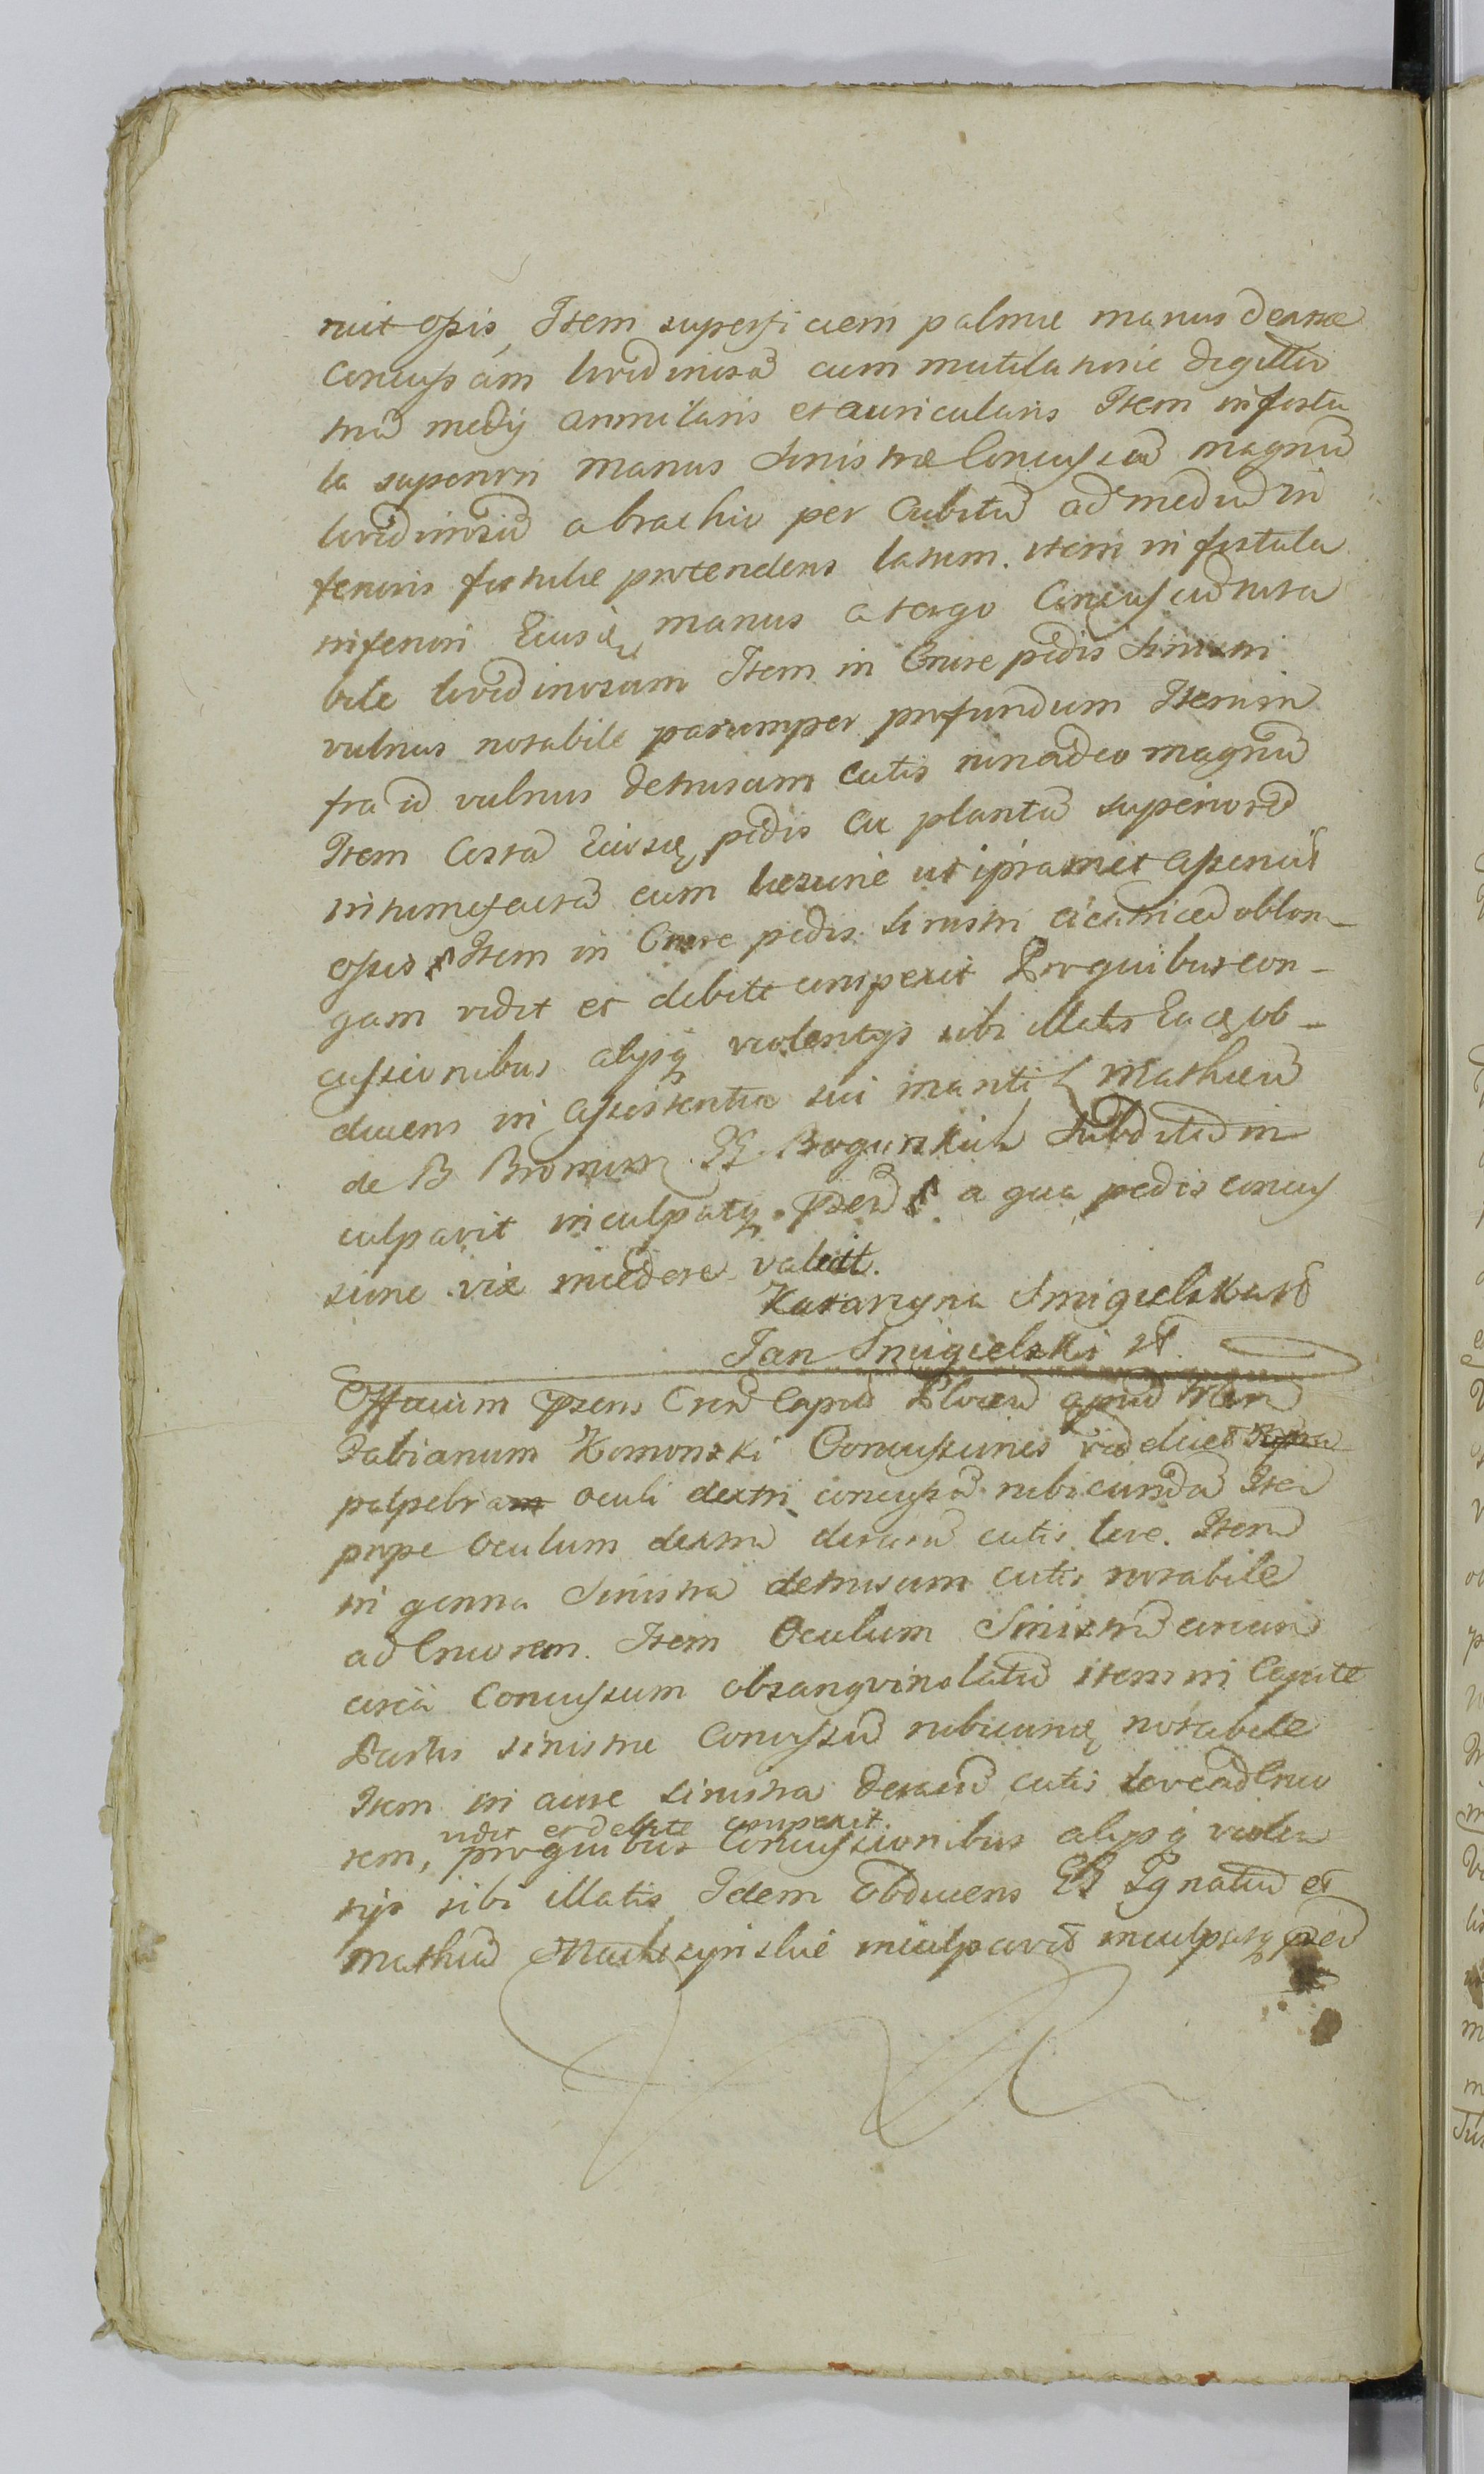 ruit offis, Item superficiem palmae manus dextrae
concussam lividinosã cum mutilatione digitto
trũ medij annularis et auricularis Item in fistu
la superiori manus sinistrae Concussũ magnũ
lividinosũ a brachio per Cubitũ ad mediũ in
ferioris fistulae protendens latum. item in fistula
inferiori Eiusdẽ manus a tergo Concussũ nota
bile lividinosum Item in Crure pedis sinistri
vulnus notabile parumper profundum Item in
fra id vulnus detrusum cutis non adeo magnũ
Item Costã Eiusdẽ pedis cũ plantã superiorẽ
intumefactã cum laesione ut ipsamet asseruit
offis Item in Crure pedis sinistri cicatricẽ oblon-
gam vidit et debite comperit Pro quibus con-
cussionibus alijsq violentijs sibi illatis Eadẽ ob-
ducens in assistentia sui mariti Mathaeũ
de B Bromierz GG. Bogurskich Subditũ in
culpavit inculpatq praesẽ a qua pedis concus
sione vix incedere valet.
Katarzyna Smigielska
Jan Smigielski
Officium praesens Crense Capit Plocen apud
Fabianum Komorski Concussiones videlicet
palpebram oculi dextri concussã rubicundã Itẽ
prope Oculum dextrũ derasũ cutis leve. Item
in genna Sinistra detrusum cutis notabile
ad Cruorem. Item Oculum Sinistrũ circum
circa Concussum obsangvinolatũ item in Capite
Partis sinistrae Concussũ rubicundũ notabile
Item in aure sinistra derasũ cutis leve ad Cruo
vidit et debite comperit
rem, pro quibus Concussionibus alijsq violen
tijs sibi illatis Idem Obducens GG Ignatiũ et
Mathiã inculpavit inculpatq praesẽ